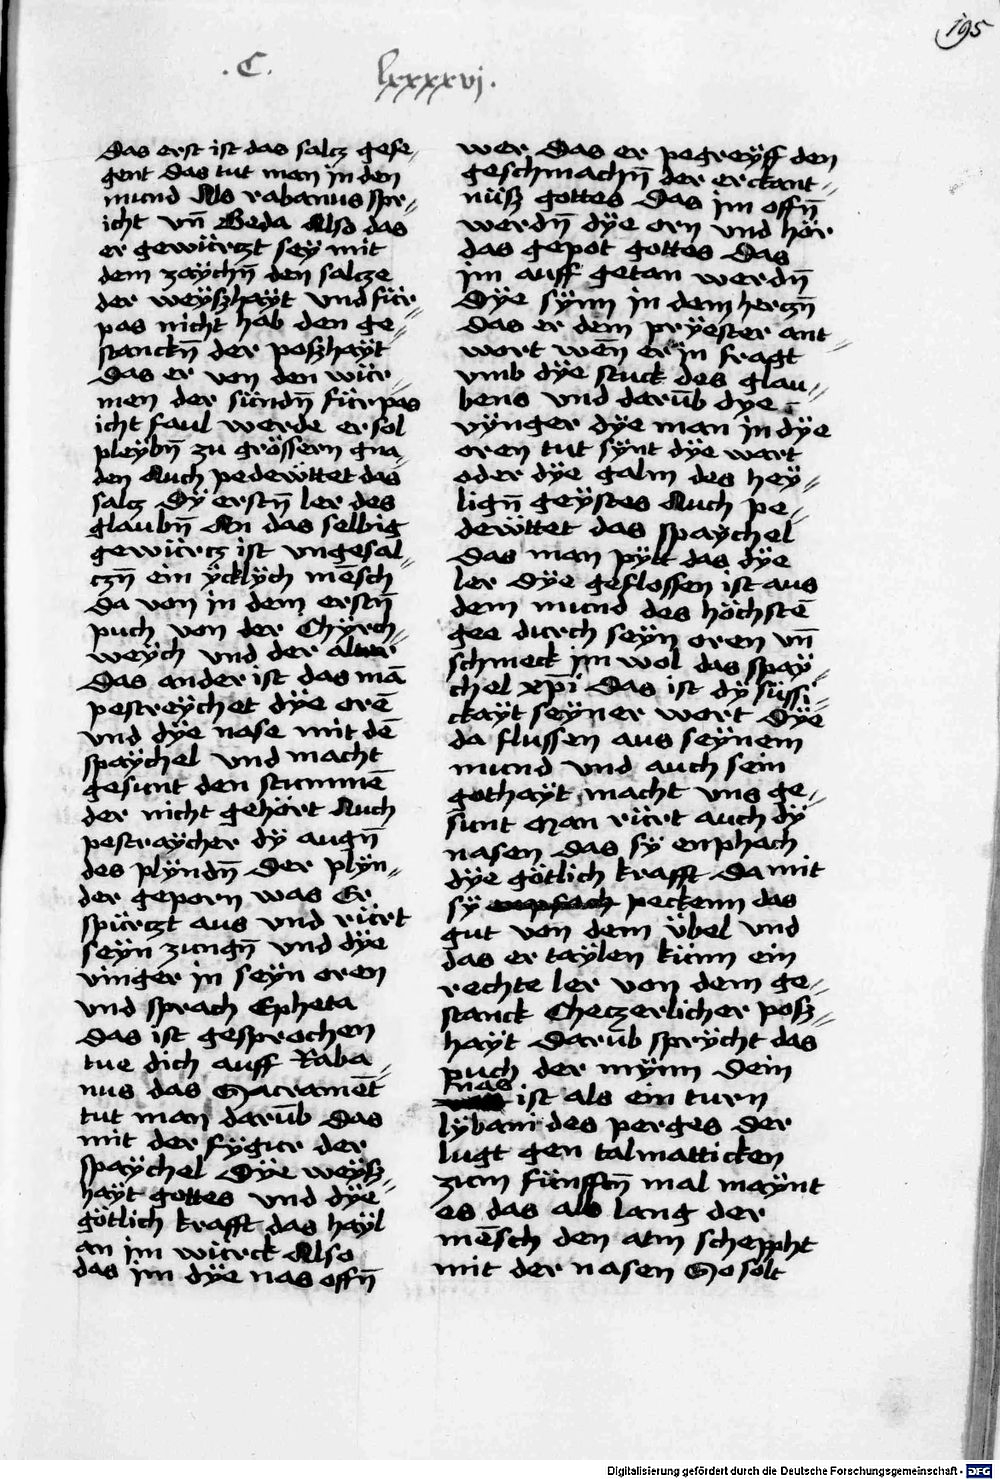 195
.C. lxxxxvj.
das erst ist das saltz gese⸗
gent das tut man in den
mund Als rabanus spr⸗
icht vn̄ Beda Also das
er gewürczt seÿ mit
dem zaÿchn̄ den salcze
der weÿszhaÿt vnd für⸗
pas nicht hab den ge⸗
stanckn̄ der poszhaÿt
das er von den wür⸗
men der sündn̄ fürpas
icht faul werde er sol
pleÿbn̄ zu grössern gna⸗
den Auch pedewttet das
saltz Dÿ erstn̄ ler des
glaubn̄ An das selbig
gewürcz ist vngesal⸗
czn̄ ein ÿcklÿch mēsch
Da von in dem erstn̄
puch von der Chÿrch⸗
weÿch vnd der altar
Das ander ist das mā
pestreÿchet dÿe orē
vnd dÿe nase mit dē
spaÿchel vnd macht
gesunt den stummē
der nicht gehört Auch
pestraÿcher dÿ augn̄
des plÿndn̄ Der plÿn⸗
der geporn was Er
spürczt aus vnd rürt
seÿn zungn̄ vnd dÿe
vinger in seÿn oren
vnd sprach Epheta
Das ist gesprochen
tue dich auff Raba⸗
nus das Sacramēt
tut man darūb das
mit der fÿgur der
spaÿchel Dÿe weÿsz⸗
haÿt gottes vnd dÿe
götlich krafft das haÿl
an im würck Also
das im dÿe nas offn̄
wer Das er pegreÿff den
geschmachn̄ der erckant⸗
nüsz gottes Das im offn̄
werdn̄ dÿe orn vnd hör
das gepot gottes Das
im auff getan werdn̄
Dÿe sÿnn in dem herczn̄
Das er dem prÿester ant⸗
wort wēn er in fragt
vmb dÿe stuck des glau⸗
bens vnd darūb dye
vÿnger dÿe man in dÿe
oren tut sÿnt dÿe wort
oder dÿe galm des heÿ⸗
lign̄ geÿstes Auch pe⸗
dewttet das spaÿchel
Das man pÿlt das dÿe
ler Dÿe geflossen ist aus
dem mund des höchstē
gee durch seÿn oren vn̄
schmeck im wol das spaÿ⸗
chel xp̄i Das ist dÿ süssi⸗
ckaÿt seÿner wort Dÿe
da flussen aus seÿnem
mund vnd auch sein
gothaÿt macht vns ge⸗
sunt Man rürt auch dÿ
nasen das sÿ enphach
dÿe götlich krafft Damit
sÿ peckenn das
gut von dem übel vnd
das er taÿlen künn ein
rechte ler von dem ge⸗
stanck Checzerlicher posz⸗
haÿt Darūb sprÿcht das
puch der mÿnn Dein
nas ist als ein turn
lÿbani des perges Der
lugt gen talmatticken
zum fünfftn̄ mal maÿnt
es das als lang der
mēsch den atm scheppht
mit der nasen So solt
Digitalisierung gefördert durch die Deutsche Forschungsgemeinschaft - DFG